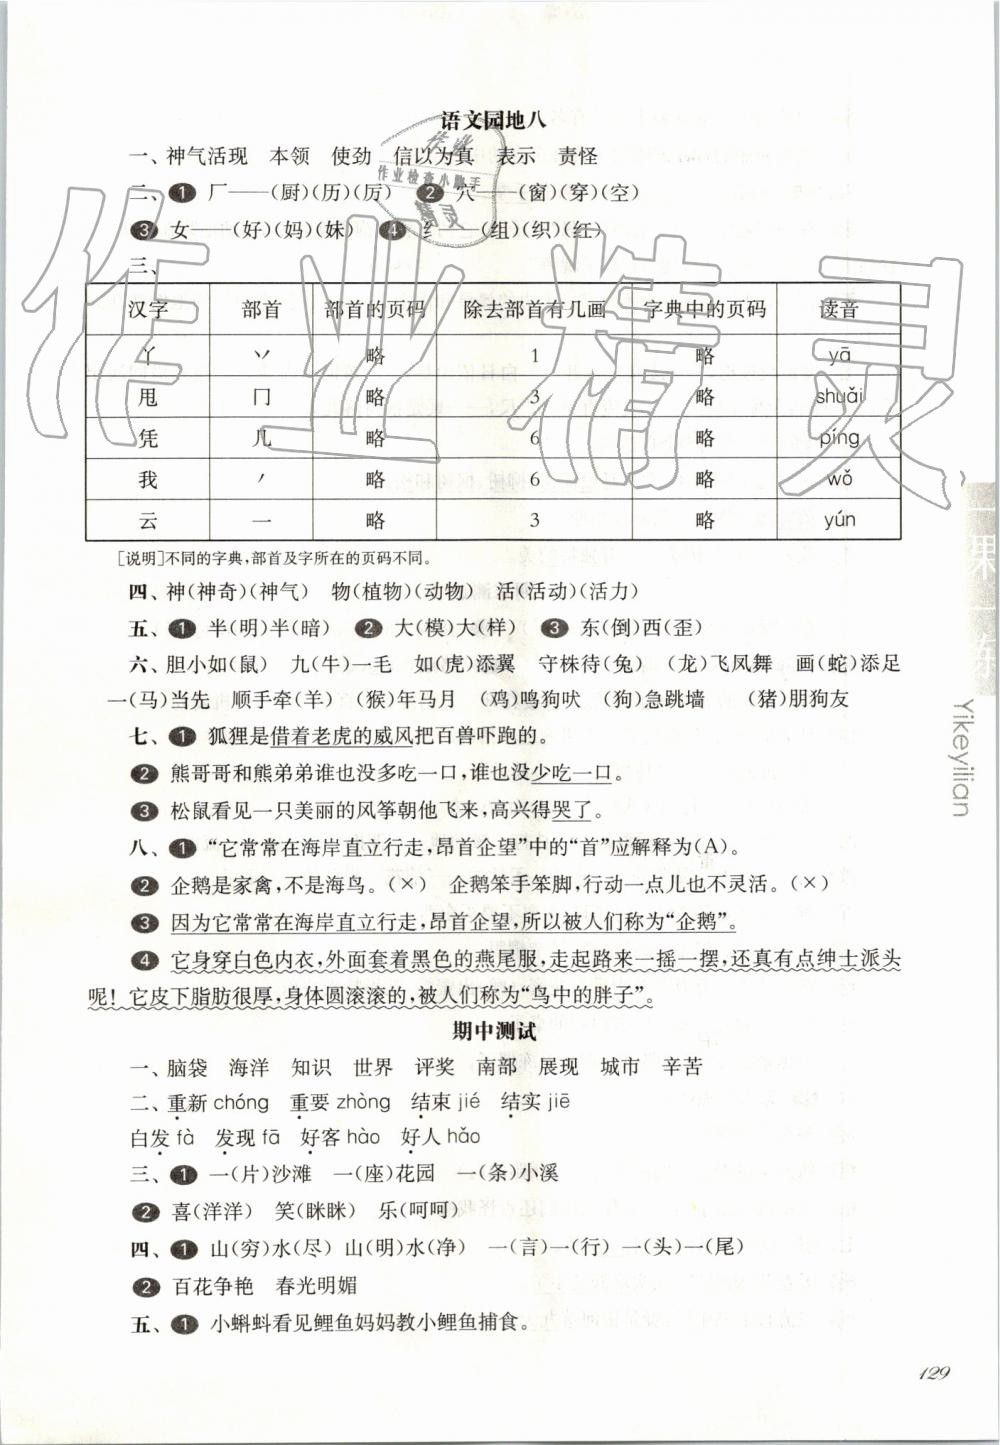 语文园地八
一、神气活现 本领 使劲 信以为真 表示 责怪
二、❶ 厂——(厨)(历)(厉) ❷ 穴——(窗)(穿)(空)
❸ 女——(好)(妈)(妹) ❹ 纟——(组)(织)(红)
三、
汉字 部首 部首的页码 除去部首有几画 字典中的页码 读音
丫 丷 略 1 略 yā
甩 冂 略 3 略 shuǎi
凭 几 略 6 略 píng
我 丿 略 6 略 wǒ
云 一 略 3 略 yún
[说明]不同的字典,部首及字所在的页码不同。
四、神(神奇)(神气) 物(植物)(动物) 活(活动)(活力)
五、❶ 半(明)半(暗) ❷ 大(模)大(样) ❸ 东(倒)西(歪)
六、胆小如(鼠) 九(牛)一毛 如(虎)添翼 守株待(兔) (龙)飞凤舞 画(蛇)添足
一(马)当先 顺手牵(羊) (猴)年马月 (鸡)鸣狗吠 (狗)急跳墙 (猪)朋狗友
七、❶ 狐狸是借着老虎的威风把百兽吓跑的。
❷ 熊哥哥和熊弟弟谁也没多吃一口,谁也没少吃一口。
❸ 松鼠看见一只美丽的风筝朝他飞来,高兴得哭了。
八、❶ “它常常在海岸直立行走,昂首企望”中的“首”应解释为(A)。
❷ 企鹅是家禽,不是海鸟。(×) 企鹅笨手笨脚,行动一点儿也不灵活。(×)
❸ 因为它常常在海岸直立行走,昂首企望,所以被人们称为“企鹅”。
❹ 它身穿白色内衣,外面套着黑色的燕尾服,走起路来一摇一摆,还真有点绅士派头
呢!它皮下脂肪很厚,身体圆滚滚的,被人们称为“鸟中的胖子”。
期中测试
一、脑袋 海洋 知识 世界 评奖 南部 展现 城市 辛苦
二、重新 chóng 重要 zhòng 结束 jié 结实 jiē
白发 fà 发现 fā 好客 hào 好人 hǎo
三、❶ 一(片)沙滩 一(座)花园 一(条)小溪
❷ 喜(洋洋) 笑(眯眯) 乐(呵呵)
四、❶ 山(穷)水(尽) 山(明)水(净) 一(言)一(行) 一(头)一(尾)
❷ 百花争艳 春光明媚
五、❶ 小蝌蚪看见鲤鱼妈妈教小鲤鱼捕食。
129
一课一练
Yikeyilian
作业
作业检查小助手
精灵
作业精灵